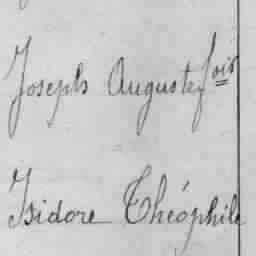 Joseph Auguste fois
Isidore Théophile